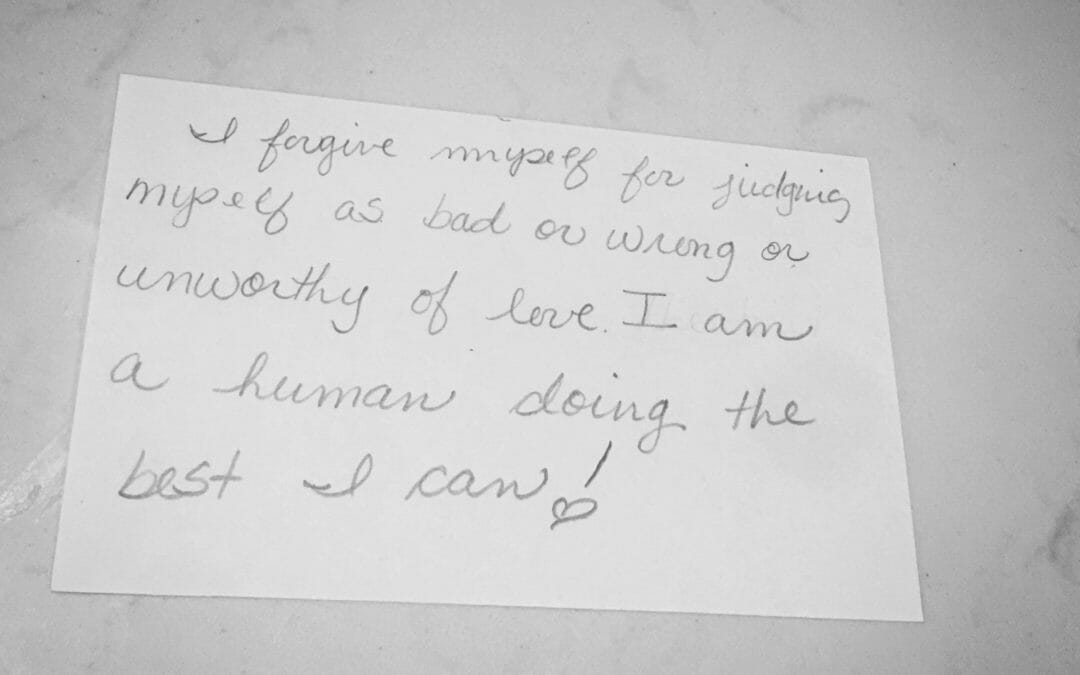 I forgive myself for judging
myself as bad or wrong or
unworthy of love. I am
a human doing the
best I can!